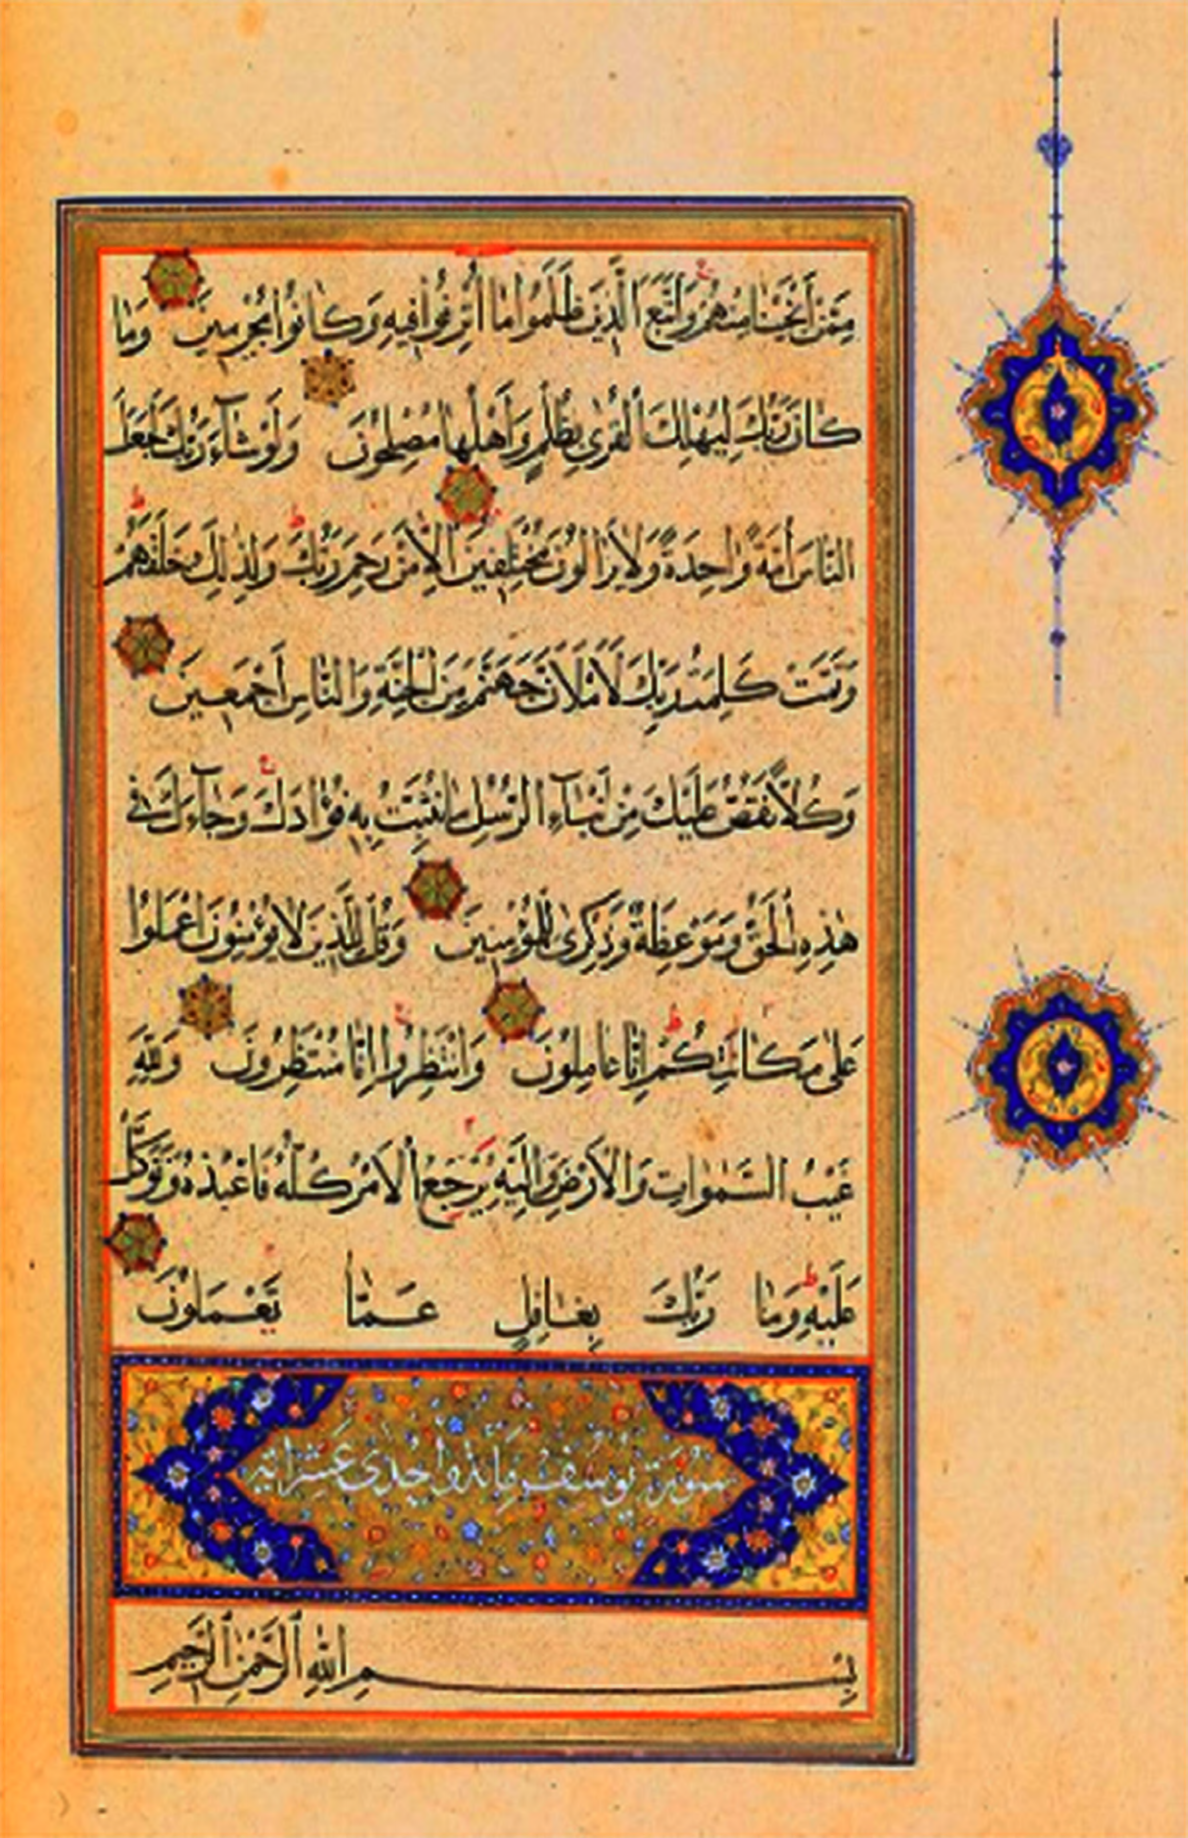 مِمَّنْ أَنْجَيْنَا مِنْهُمْ وَاتَّبَعَ الَّذِينَ ظَلَمُوا مَا أُتْرِفُوا فِيهِ وَكَانُوا مُجْرِمِينَ وَمَا
كَانَ رَبُّكَ لِيُهْلِكَ الْقُرٰى بِظُلْمٍ وَأَهْلُهَا مُصْلِحُونَ وَلَوْ شَآءَ رَبُّكَ لَجَعَلَ
النَّاسَ أُمَّةً وَاحِدَةً وَلَا يَزَالُونَ مُخْتَلِفِينَ إِلَّا مَنْ رَحِمَ رَبُّكَ وَلِذٰلِكَ خَلَقَهُمْ
وَتَمَّتْ كَلِمَةُ رَبِّكَ لَأَمْلَأَنَّ جَهَنَّمَ مِنَ الْجِنَّةِ وَالنَّاسِ أَجْمَعِينَ
وَكُلًّا نَقُصُّ عَلَيْكَ مِنْ أَنْبَآءِ الرُّسُلِ مَا نُثَبِّتُ بِهِ فُؤَادَكَ وَجَآءَكَ فِي
هٰذِهِ الْحَقُّ وَمَوْعِظَةٌ وَذِكْرٰى لِلْمُؤْمِنِينَ وَقُلْ لِلَّذِينَ لَا يُؤْمِنُونَ اعْمَلُوا
عَلٰى مَكَانَتِكُمْ إِنَّا عَامِلُونَ وَانْتَظِرُوا إِنَّا مُنْتَظِرُونَ وَلِلّٰهِ
غَيْبُ السَّمٰوَاتِ وَالْأَرْضِ وَإِلَيْهِ يُرْجَعُ الْأَمْرُ كُلُّهُ فَاعْبُدْهُ وَتَوَكَّلْ
عَلَيْهِ وَمَا رَبُّكَ بِغَافِلٍ عَمَّا تَعْمَلُونَ
سُورَةُ يُوسُفَ مِائَة وَإِحْدٰى عَشَرَ آيَة
بِسْمِ اللّٰهِ الرَّحْمٰنِ الرَّحِيمِ